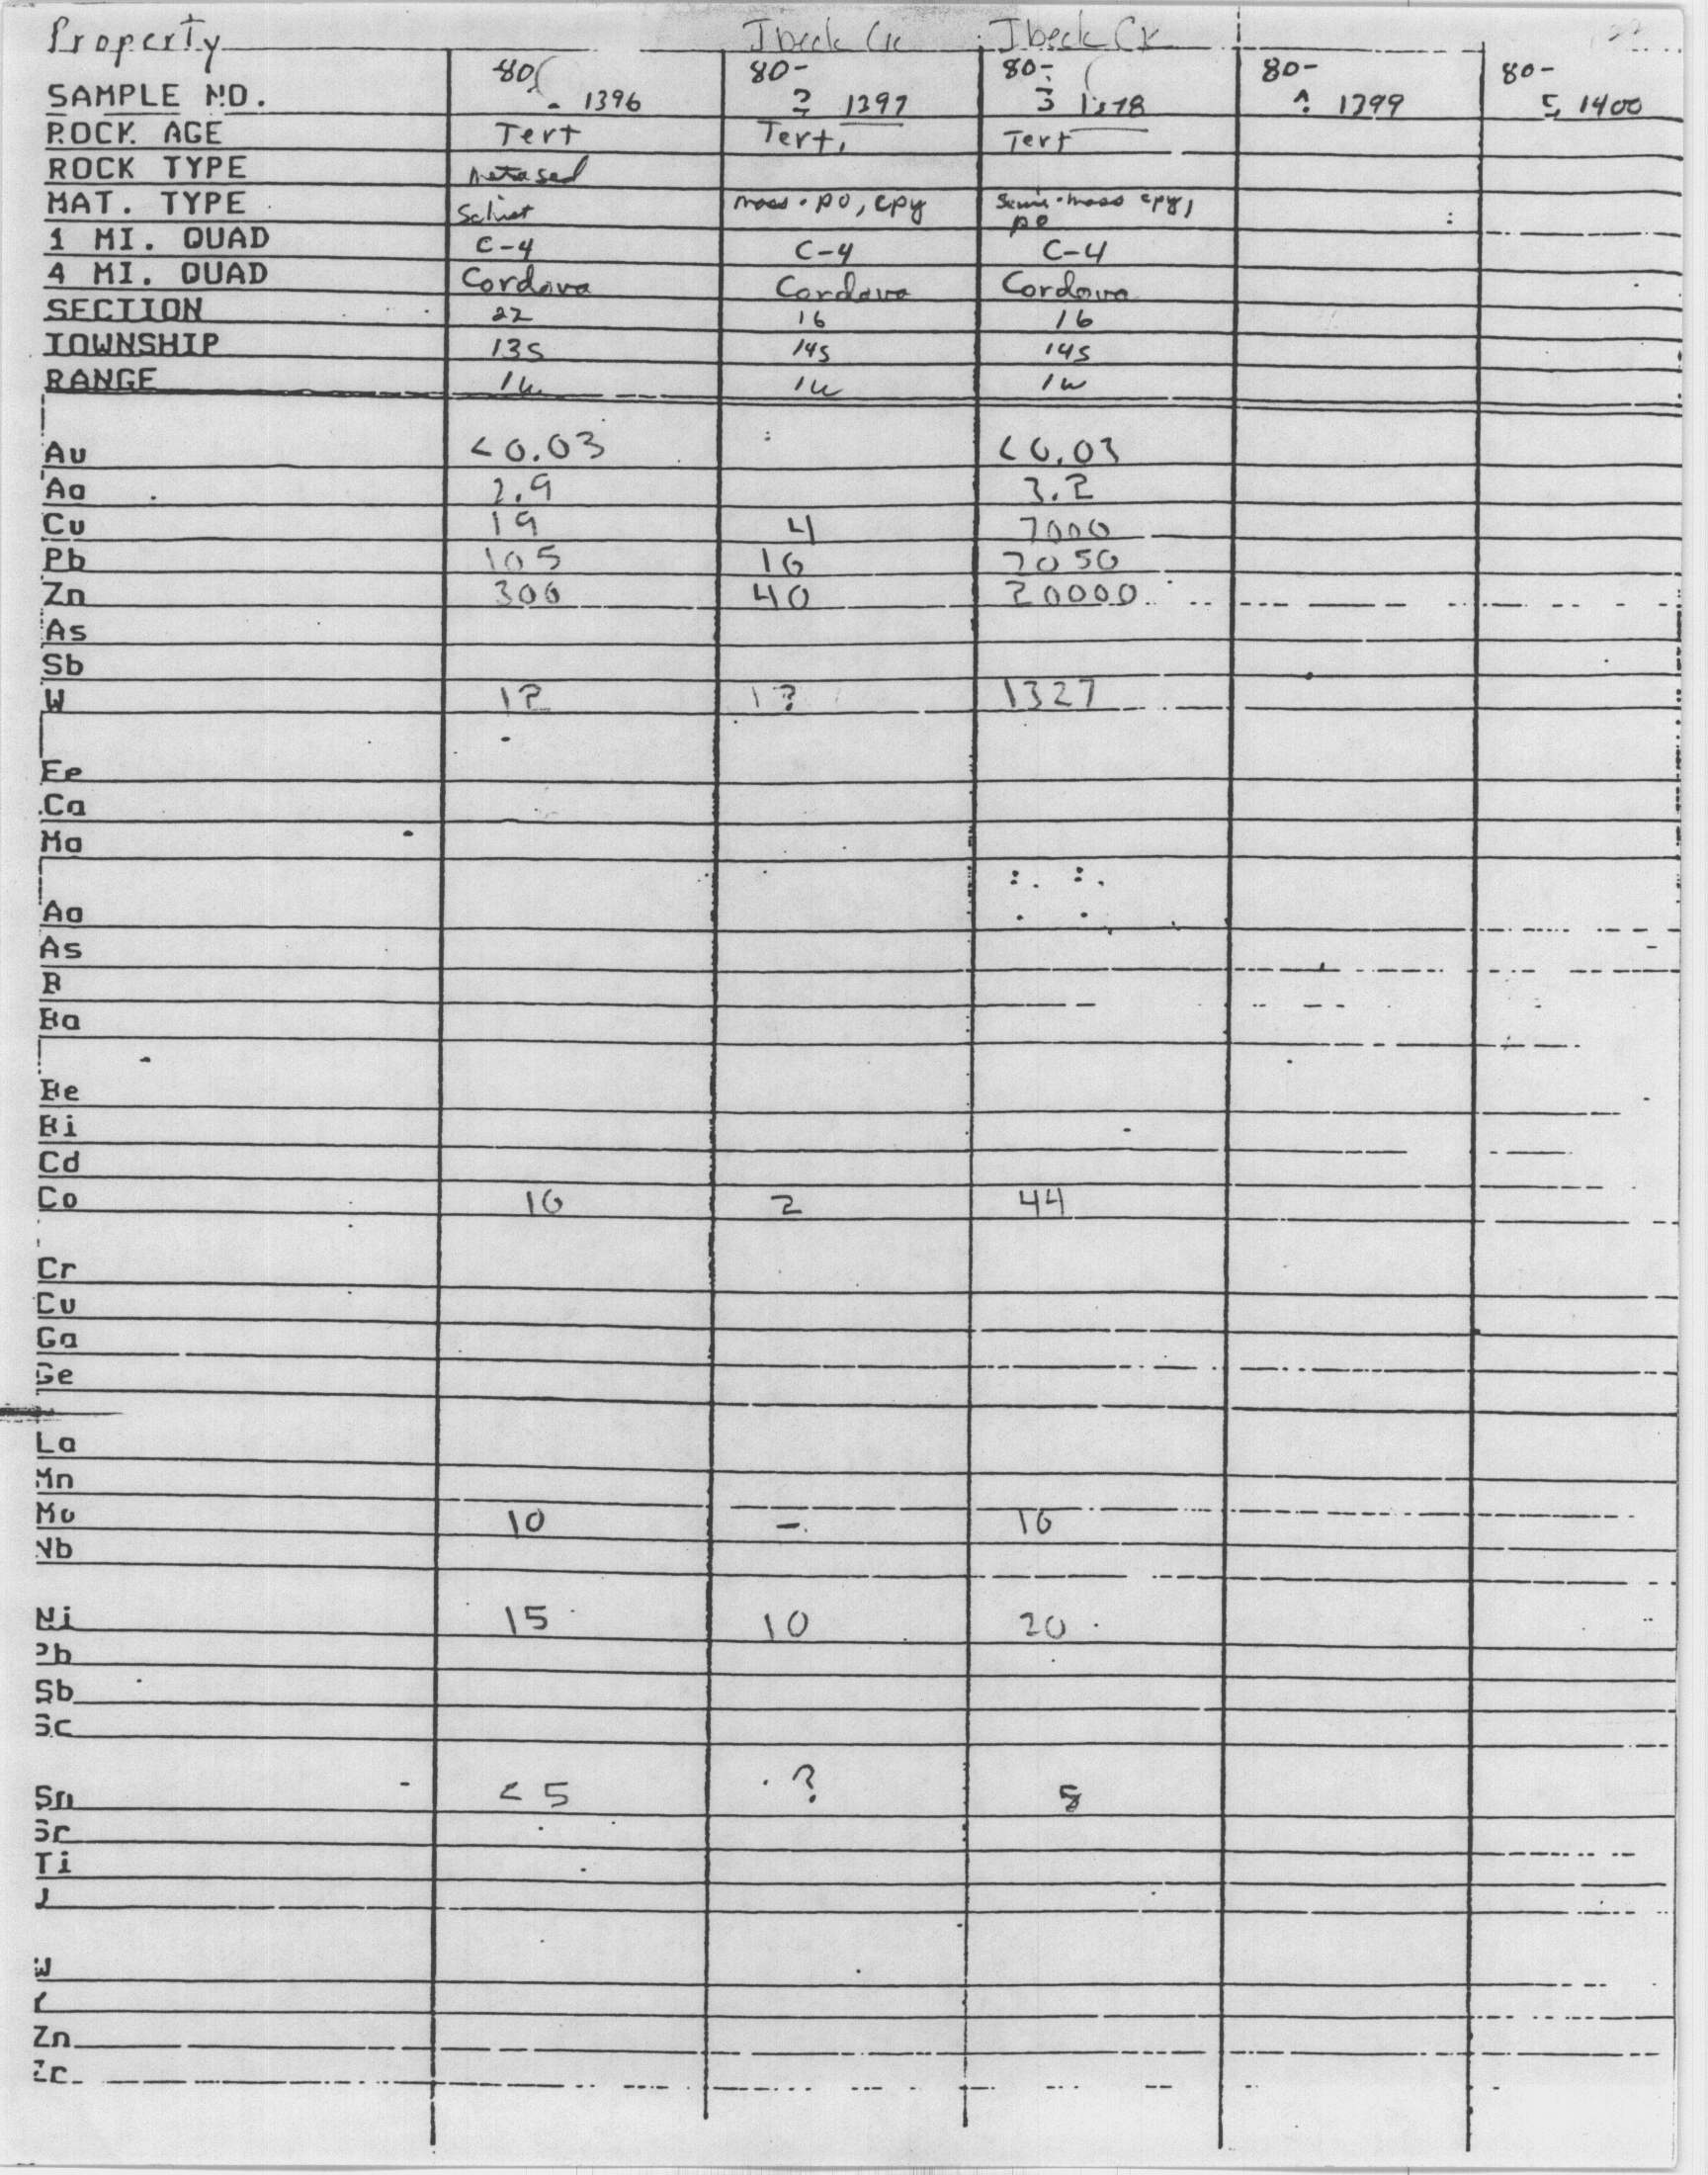 Property Ibeck Ck Ibeck Ck
80- 80- 80- 80- 80-
SAMPLE NO. 1396 2 1397 3 1399 5 1400
ROCK AGE Tert Tert. Tert
ROCK TYPE metased
MAT. TYPE Schist mass. po, cpy semi-mass cpy, po
1 MI. QUAD C-4 C-4 C-4
4 MI. QUAD Cordova Cordova Cordova
SECTION 22 16 16
TOWNSHIP 13S 14S 14S
RANGE 1w 1w 1w
Au <0.03 <0.03
Ag 2.9 3.2
Cu 19 4 7000
Pb 105 10 2050
Zn 300 40 20000
As
Sb
W 12 1? 1327
Fe
Ca
Mg
Ag
As
B
Ba
Be
Bi
Cd
Co 10 2 44
Cr
Cu
Ga
Ge
La
Mn
Mo 10 - 10
Nb
Ni 15 10 20
Pb
Sb
Sc
Sn <5 ? 8
Sr
Ti
W
Zn
Zr